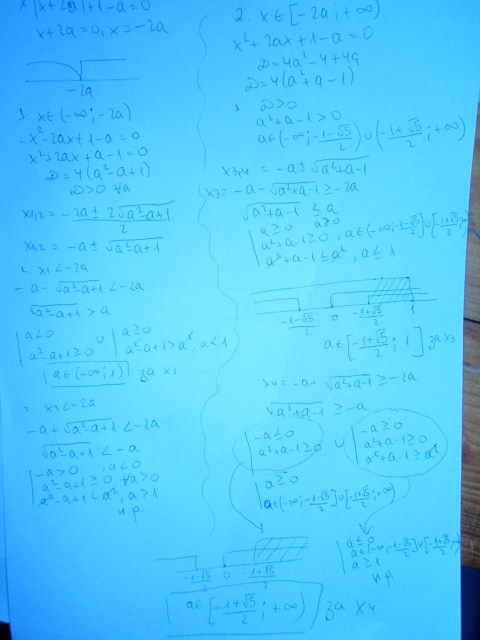 x|x+2a|+1-a=0
x+2a=0, x=-2a
-2a
1. x∈(-∞;-2a)
-x²-2ax+1-a=0
x²+2ax+a-1=0
D=4(a²-a+1)
D>0 ∀a
x₁,₂ = (-2a±2√(a²-a+1))/2
x₁,₂ = -a±√(a²-a+1)
x₁<-2a
-a-√(a²-a+1)<-2a
√(a²-a+1)>a
a<0
a²-a+1≥0
∪
a≥0
a²-a+1>a², a<1
a∈(-∞;1) за x₁
x₂<-2a
-a+√(a²-a+1)<-2a
√(a²-a+1)<-a
-a>0, a<0
a²-a+1≥0 ∀a>0
a²-a+1<a², a>1
н.р.
2. x∈[-2a;+∞)
x²+2ax+1-a=0
D=4a²-4+4a
D=4(a²+a-1)
1. D>0
a²+a-1>0
a∈(-∞;(-1-√5)/2)∪((-1+√5)/2;+∞)
x₃,₄ = -a±√(a²+a-1)
x₃=-a-√(a²+a-1)≥-2a
√(a²+a-1)≤a
a≥0 a≥0
a²+a-1≥0, a∈(-∞;(-1-√5)/2]∪[(-1+√5)/2;
a²+a-1≤a², a≤1
(-1-√5)/2 0 (-1+√5)/2 1
a∈[(-1+√5)/2;1] за x₃
x₄=-a+√(a²+a-1)≥-2a
√(a²+a-1)≥-a
-a≤0
a²+a-1≥0
∪
-a≥0
a²+a-1≥0
a²+a-1≥a²
a≥0
a∈(-∞;(-1-√5)/2]∪[(-1+√5)/2;+∞)
a≤0
a∈(-∞;(-1-√5)/2]∪[(-1+√5)/2;+∞)
a≥1
н.р.
(-1-√5)/2 0 (-1+√5)/2
a∈[(-1+√5)/2;+∞) за x₄